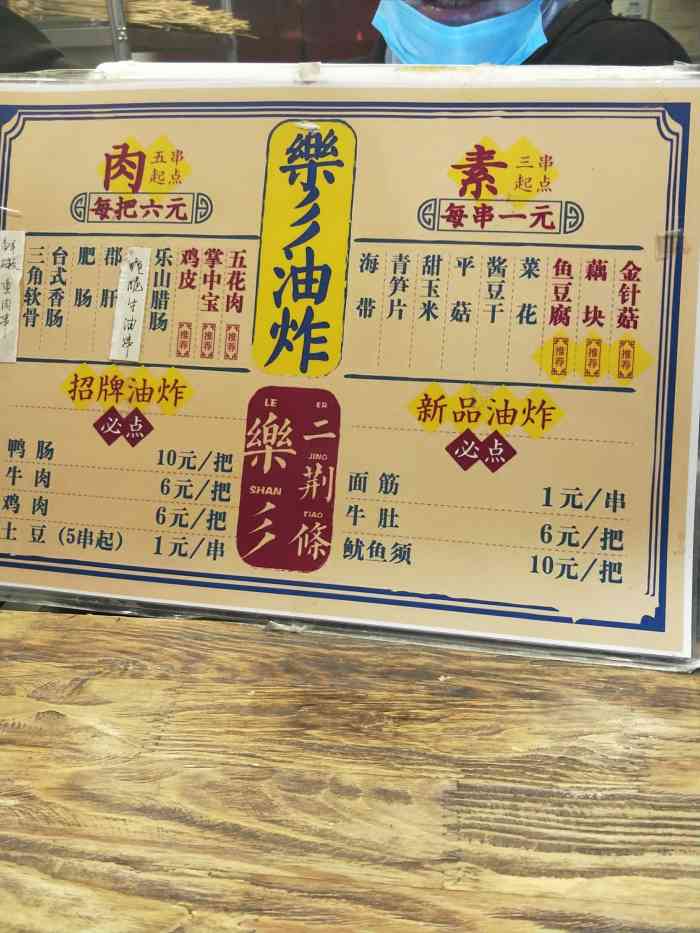 肉 五串起点
每把六元
五花肉 推荐
掌中宝 推荐
鸡皮 推荐
乐山腊肠
郡肝
肥肠
台式香肠
三角软骨
樂山油炸
素 三串起点
每串一元
金针菇 推荐
藕块 推荐
鱼豆腐 推荐
菜花
酱豆干
平菇
甜玉米
青笋片
海带
招牌油炸
必点
鸭肠 10元/把
牛肉 6元/把
鸡肉 6元/把
土豆(5串起) 1元/串
LE SHAN
樂山
ER JING TIAO
二荆條
新品油炸
必点
面筋 1元/串
牛肚 6元/把
鱿鱼须 10元/把